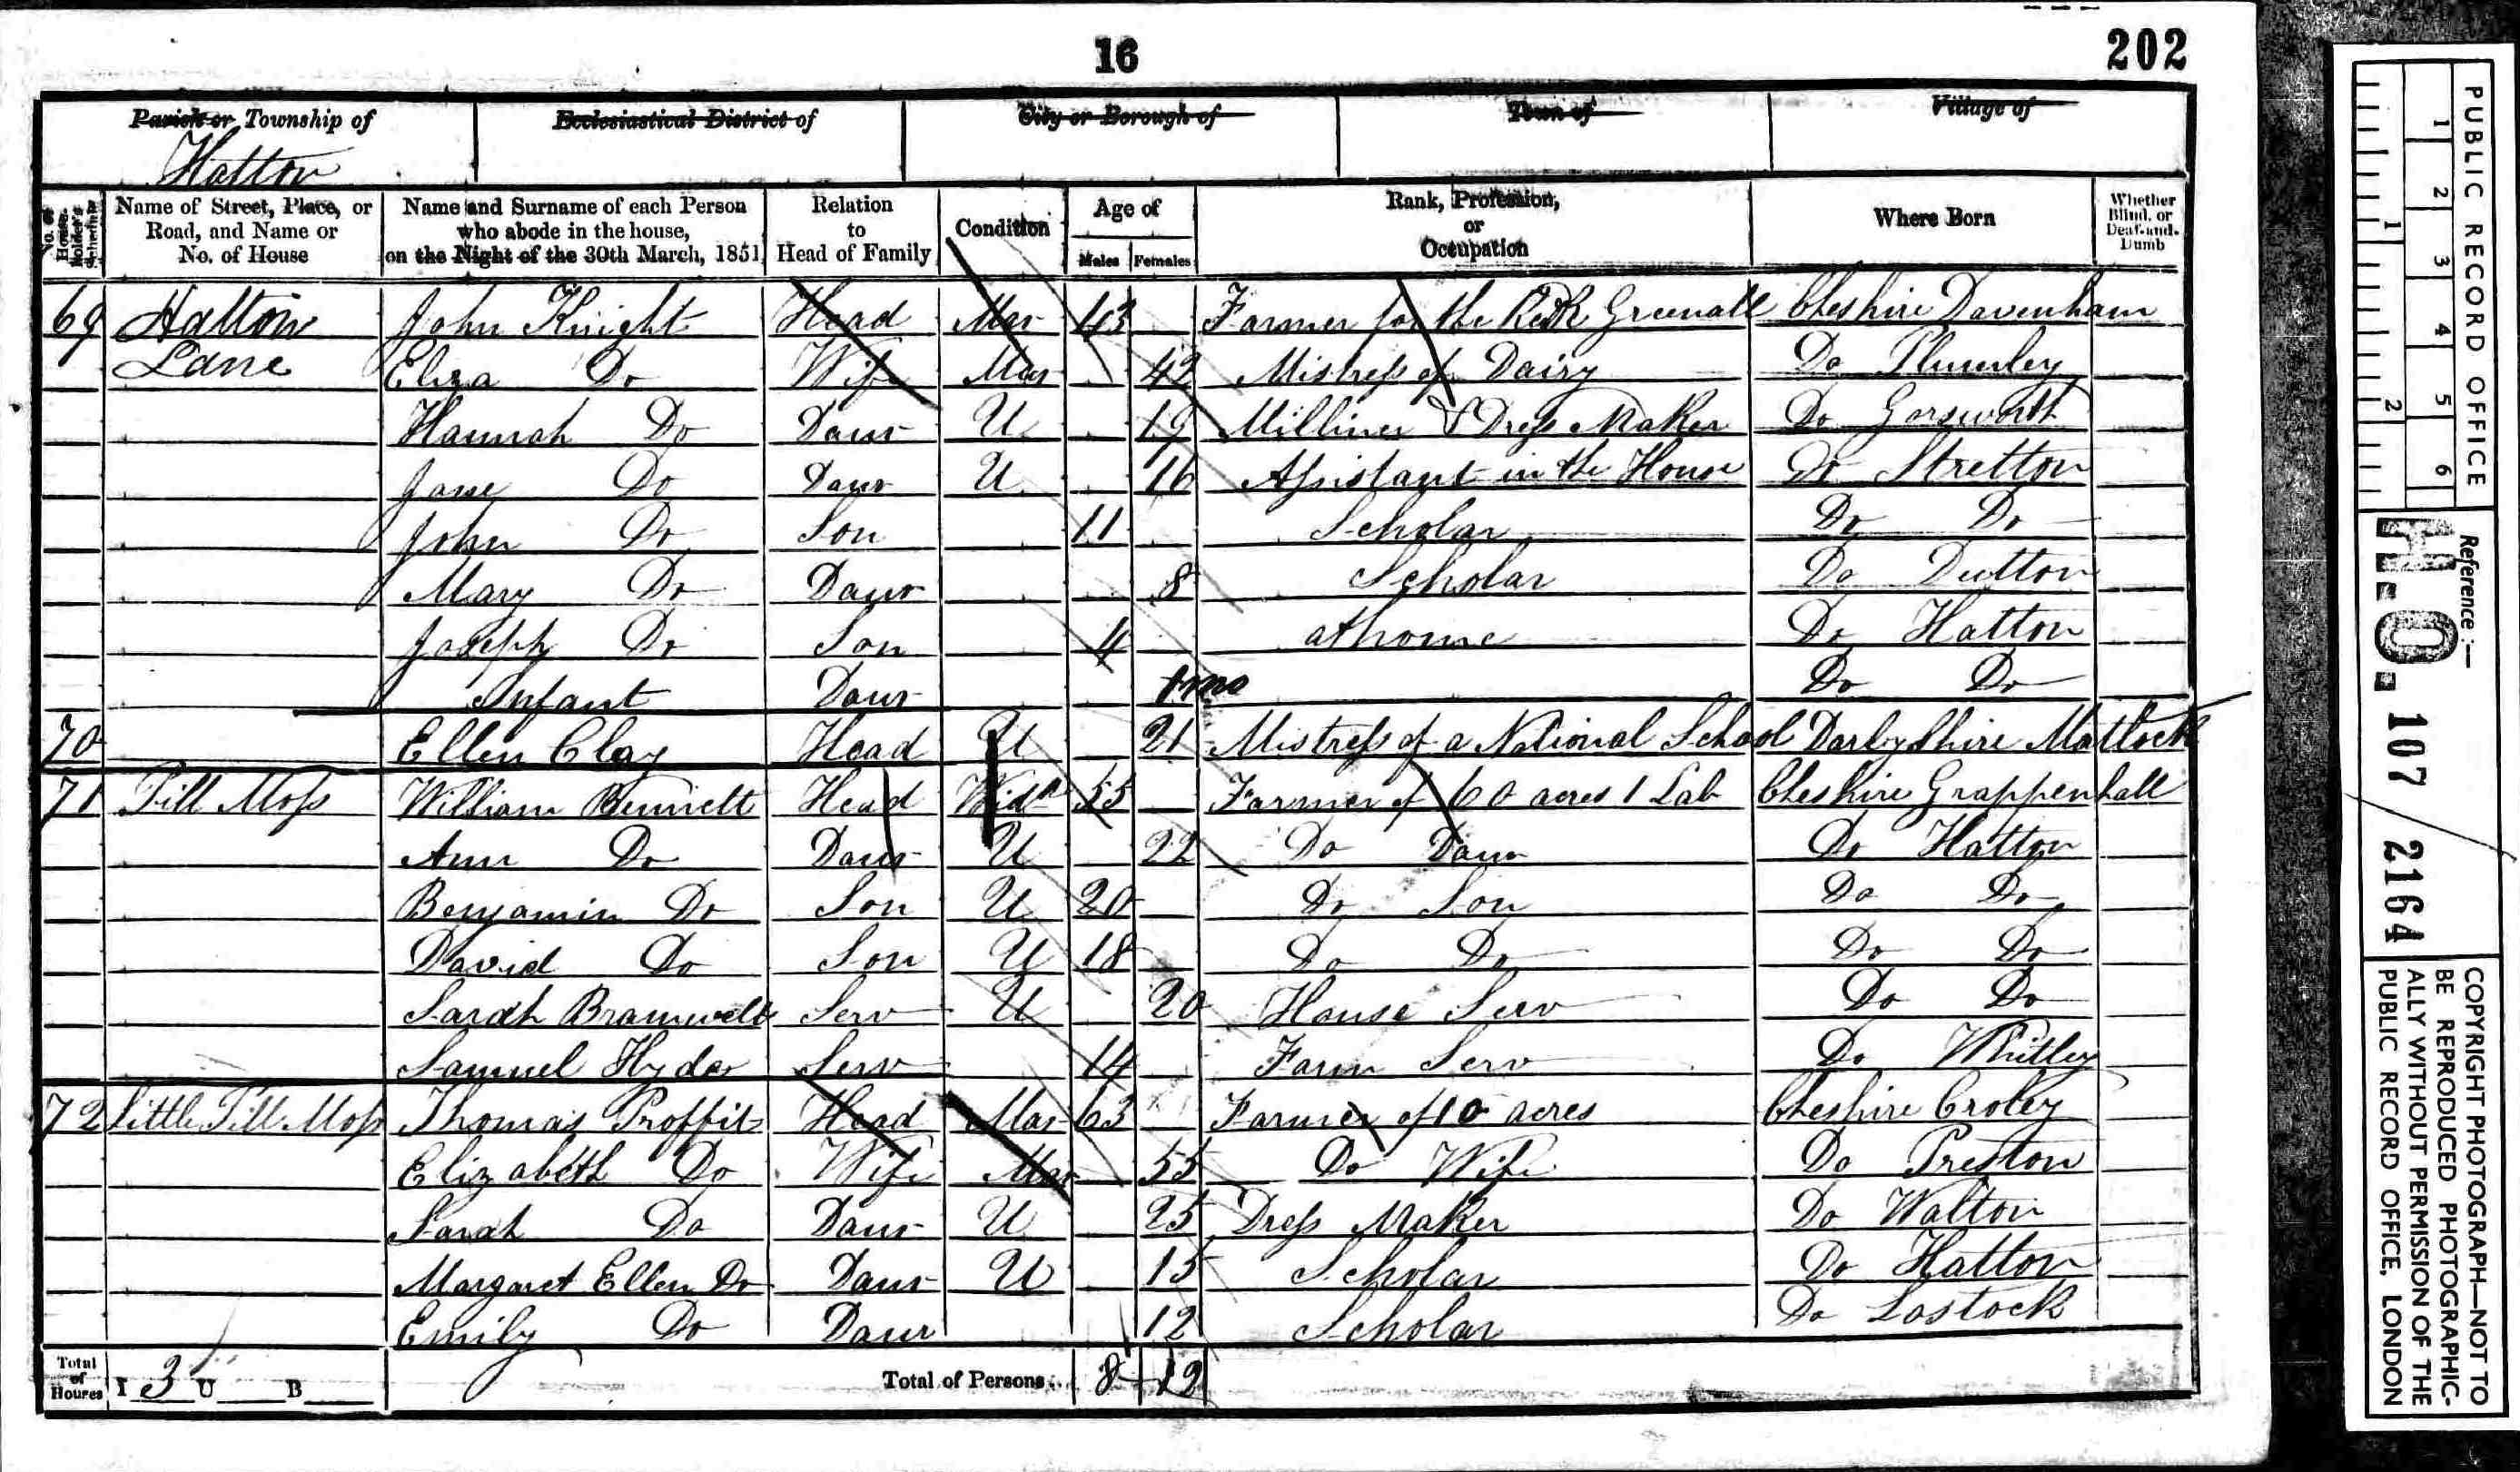 16
202
Parish or Township of
Ecclesiastical District of
City or Borough of
Town of
Village of
Hatton
No. of House-holder's Schedule
Name of Street, Place, or Road, and Name or No. of House
Name and Surname of each Person who abode in the house, on the Night of the 30th March, 1851
Relation to Head of Family
Condition
Age of
Males
Females
Rank, Profession, or Occupation
Where Born
Whether Blind, or Deaf-and-Dumb
69 Hatton John Knight Head Mar 43 Farmer for the Greenall Cheshire Davenham
Lane Eliza Do Wife Mar 42 Mistress of Dairy Do Plumley
Hannah Do Daur U 19 Milliner & Dress Maker Do Gorsworth
Jane Do Daur U 16 Assistant in the House Do Stretton
John Do Son 11 Scholar Do Do
Mary Do Daur 8 Scholar Do Dutton
Joseph Do Son 4 at home Do Hatton
Infant Daur 1 mo Do Do
70 Ellen Clay Head U 21 Mistress of a National School Darbyshire Matlock
71 Pill Moss William Bennett Head Widr 55 Farmer of 60 acres 1 Lab Cheshire Grappenhall
Ann Do Daur U 22 Do Daur Do Hatton
Benjamin Do Son U 20 Do Son Do Do
David Do Son U 18 Do Do Do Do
Sarah Bramwell Serv U 20 House Serv Do Do
Samuel Hyder Serv 14 Farm Serv Do Whitley
72 Little Pill Moss Thomas Proffit Head Mar 63 Farmer of 10 acres Cheshire Croley
Elizabeth Do Wife Mar 55 Do Wife Do Preston
Sarah Do Daur U 25 Dress Maker Do Walton
Margaret Ellen Do Daur U 15 Scholar Do Hatton
Emily Do Daur 12 Scholar Do Lostock
Total of Houses I 3 U B
Total of Persons... 8 12
PUBLIC RECORD OFFICE
1 2 3 4 5 6
1 2
Reference:—
H.O. 107 / 2164
COPYRIGHT PHOTOGRAPH—NOT TO
BE REPRODUCED PHOTOGRAPHIC-
ALLY WITHOUT PERMISSION OF THE
PUBLIC RECORD OFFICE, LONDON